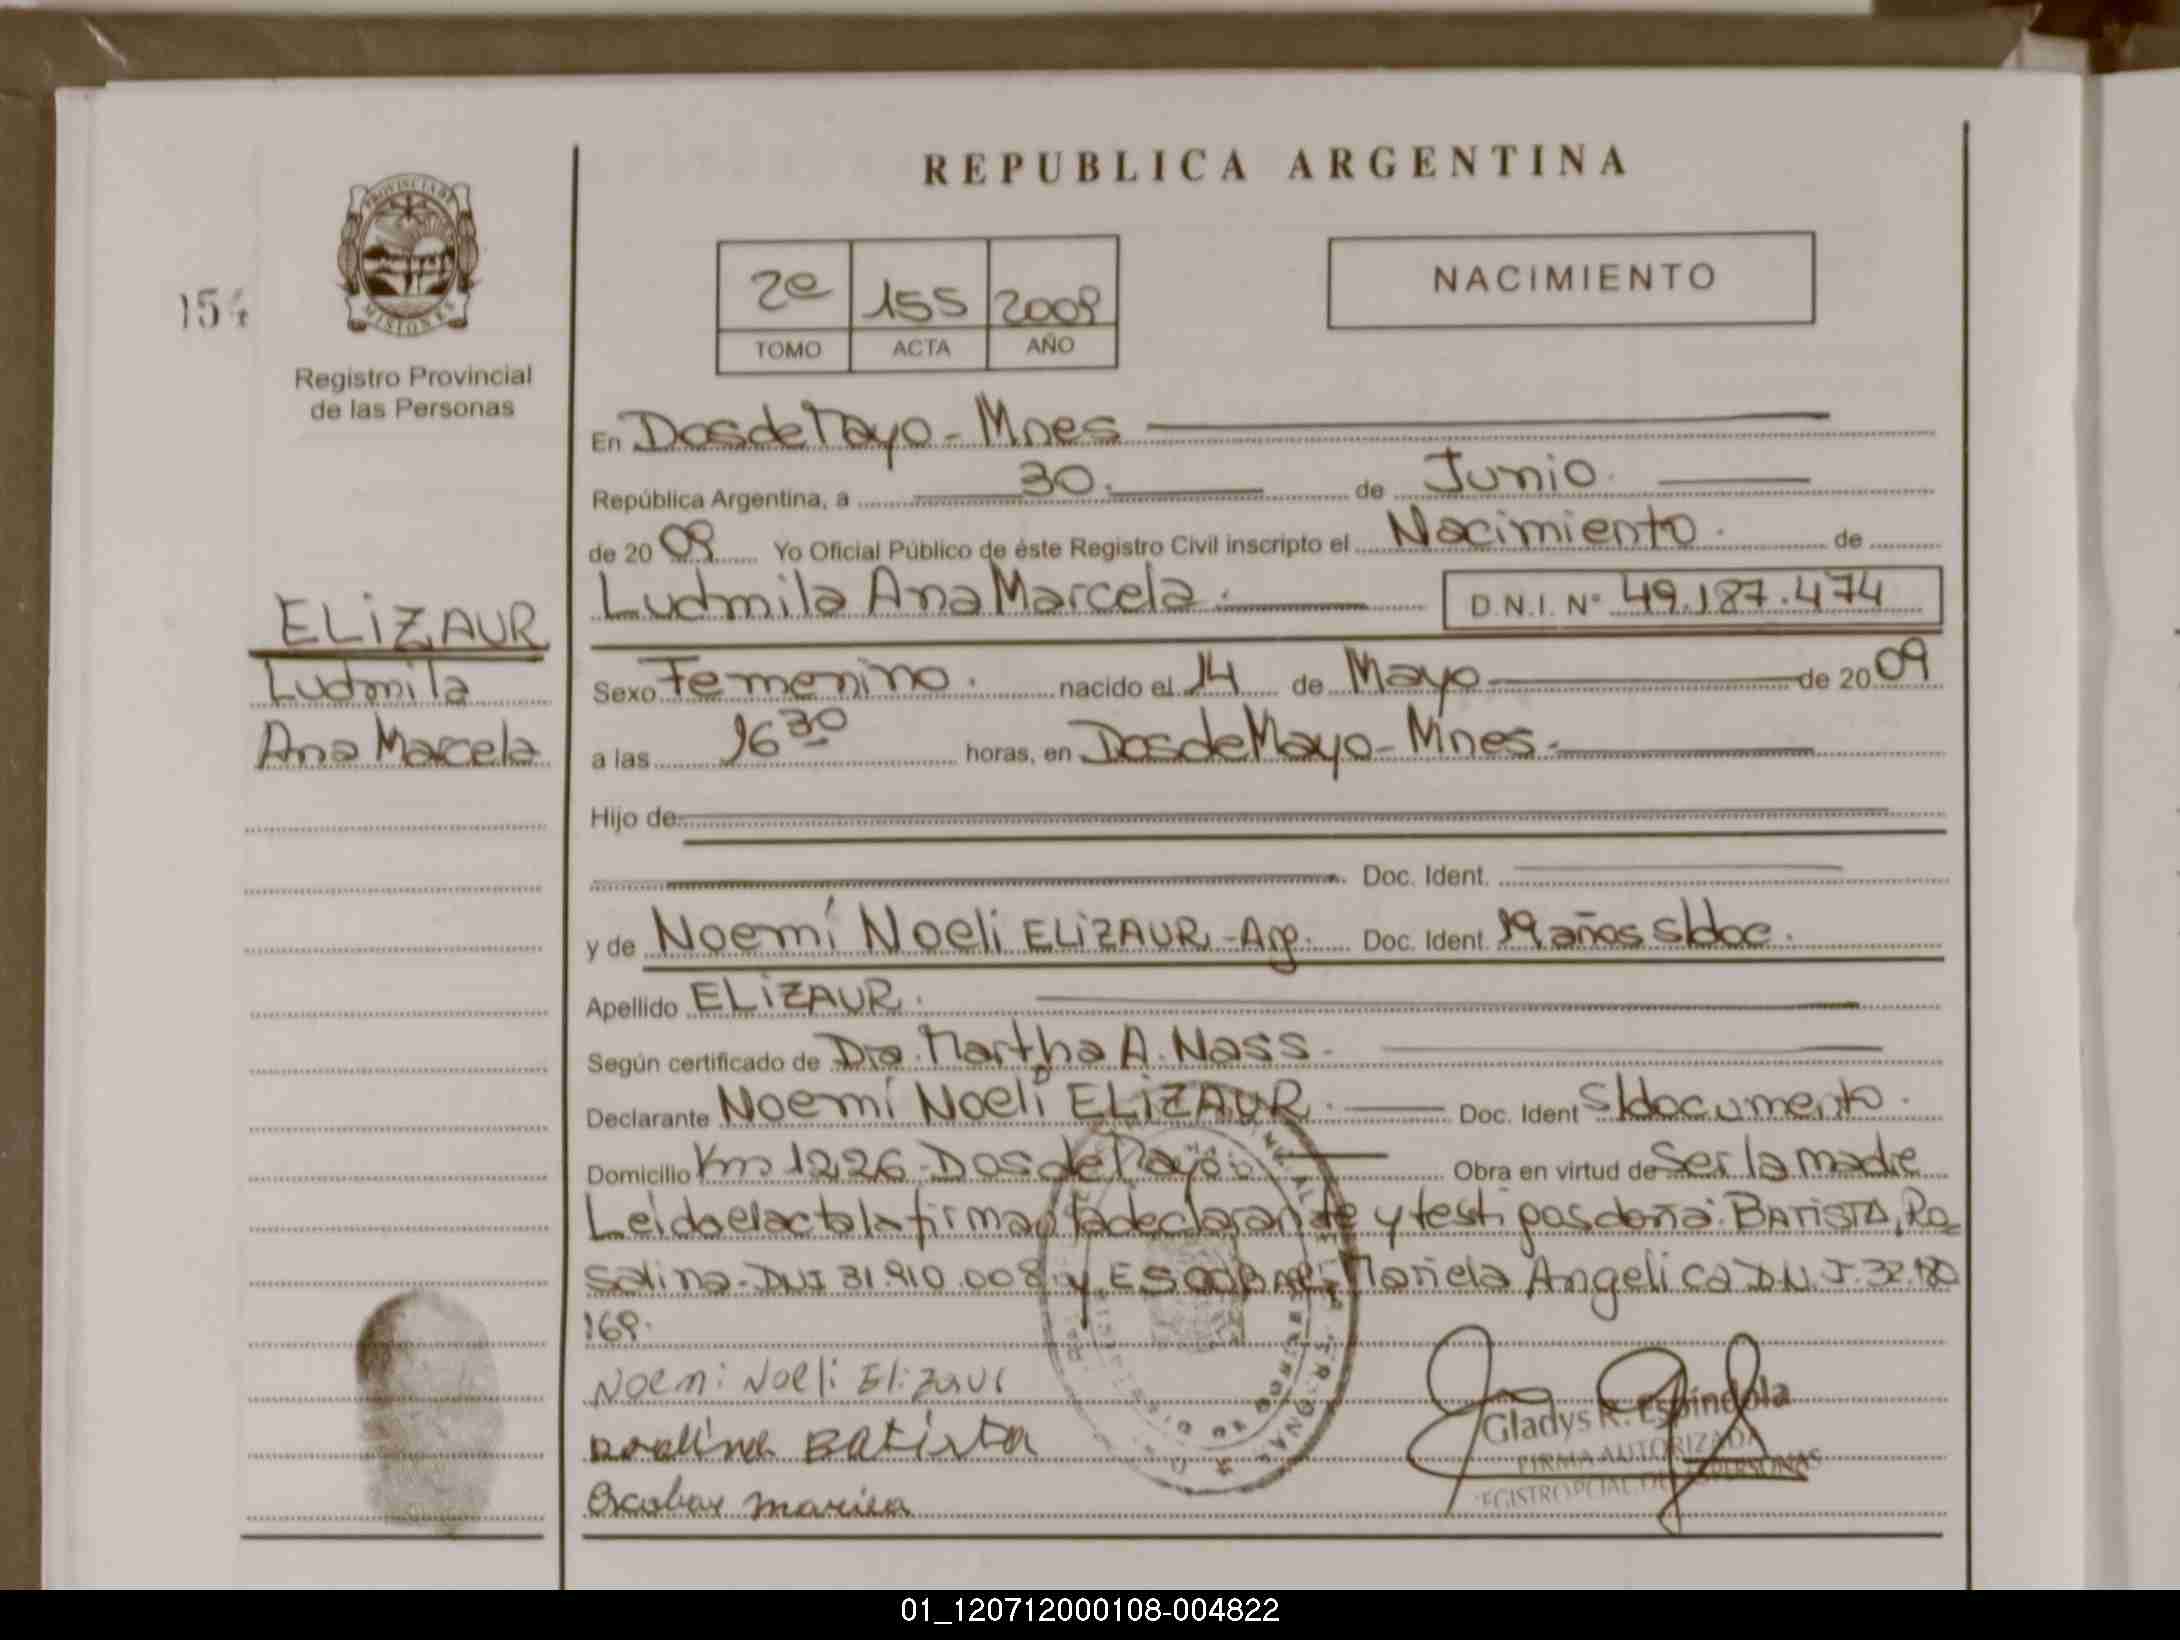 REPUBLICA ARGENTINA
PROVINCIA DE
MISIONES
154
Registro Provincial
de las Personas
2e 155 2009
TOMO ACTA AÑO
NACIMIENTO
En Dos de Mayo - Mnes
República Argentina, a 30. de Junio.
de 2009 Yo Oficial Público de éste Registro Civil inscripto el Nacimiento. de
Ludmila Ana Marcela. D.N.I. Nº 49.187.474
ELIZAUR
Ludmila
Ana Marcela
Sexo Femenino. nacido el 14 de Mayo de 2009
a las 16 30 horas, en Dos de Mayo - Mnes.
Hijo de
Doc. Ident.
y de Noemí Noeli ELIZAUR, -Arg. Doc. Ident. 19 años s/doc.
Apellido ELIZAUR.
Según certificado de Dra. Martha A. Nass.
Declarante Noemí Noeli ELIZAUR. Doc. Ident s/documento.
Domicilio Km 1226 - Dos de Mayo. Obra en virtud de Ser la madre
Leido el acta la firman la declarante y testigos doña: BATISTA, Ro
salina - DNI 31.910.008 y ESCOBAR, Mariela Angelica D.N.I. 32.180
169.
Noemi Noeli Elizaur
Batista
Escobar
Gladys R. Espíndola
FIRMA AUTORIZADA
REGISTRO PCIAL DE LAS PERSONAS
01_120712000108-004822